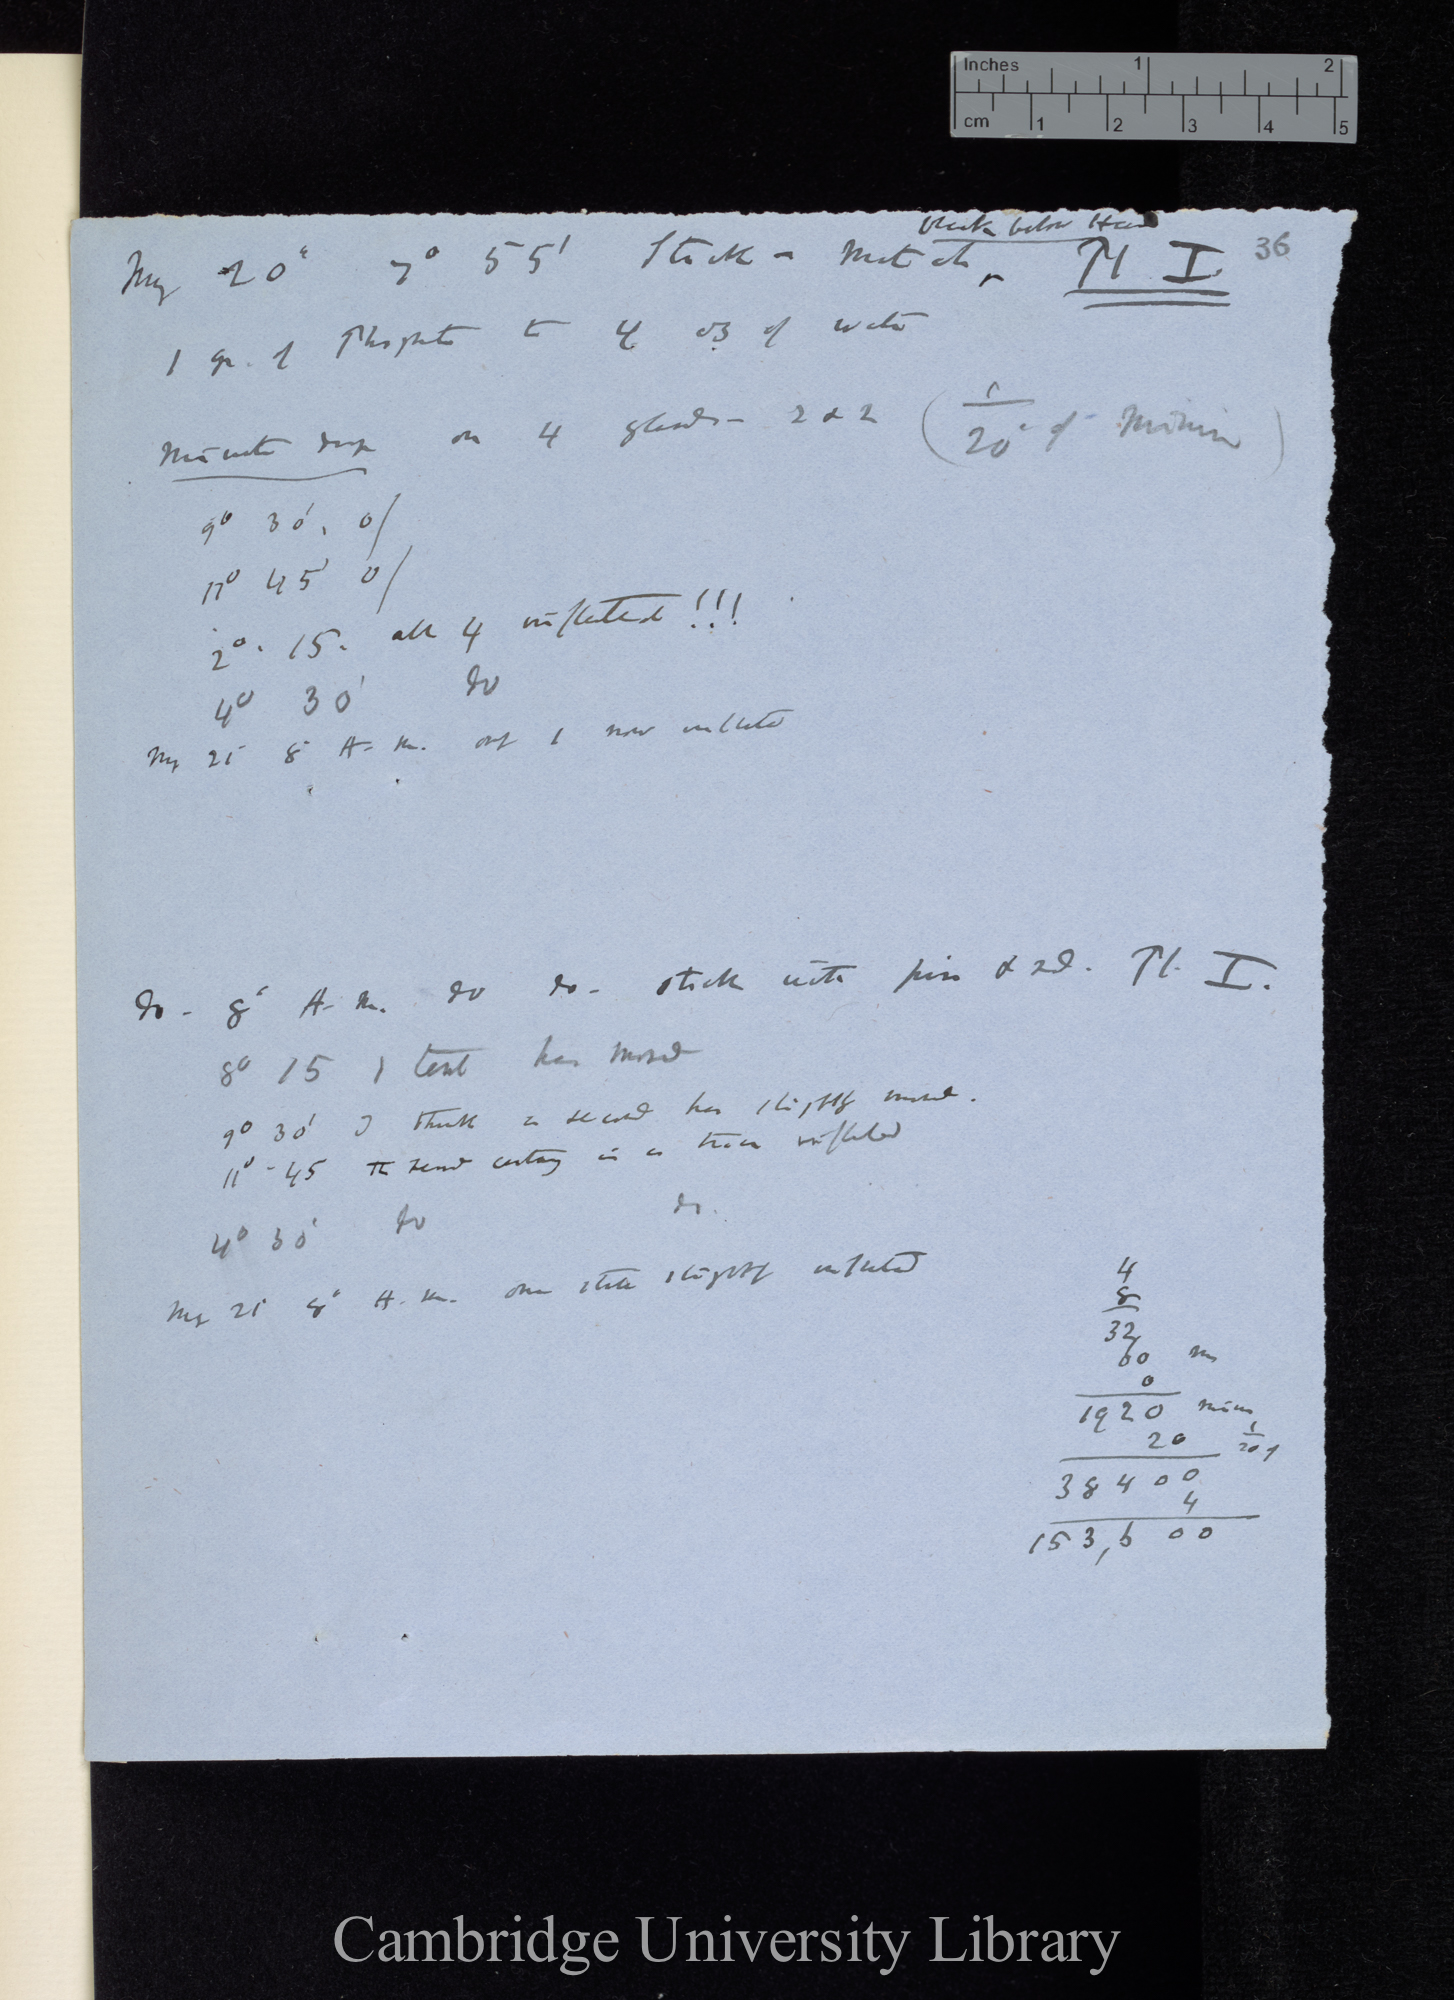 Inches 1 2
cm 1 2 3 4 5
36
black below Head
May 20' 7° 55' Stick - match, Pl I
1 gr. of Phosphate to 4 oz of water
Minute drop on 4 glands - 2 & 2 (1/20' of Minim)
9° 30', 0/
11° 45' 0/
2°. 15. all 4 inflected!!!
4° 30' do
May 21' 8' A.m. only 1 now inflected
do - 8' A.m. do do - stick with pin & red. Pl. I.
8° 15 1 tent has moved
9° 30' I think a second has slightly moved.
11° - 45 The second certainly is a trace inflected
4° 30' do do.
May 21' 8' A.m. one still slightly inflected
4
8
32
60 m
0
1920 minims
20 1/20 of
38400
4
153,600
Cambridge University Library